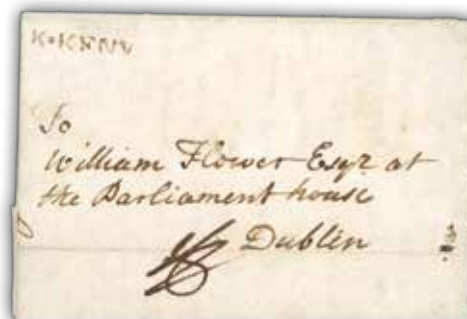 To
William Flower Esqr at
the Parliament house
Dublin